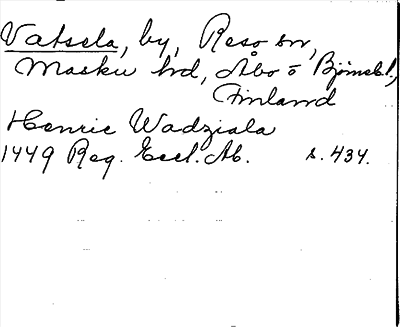 Vatsela, by, Resö sn,
Masku hd, Åbo o Björnebl.,
Finland
Henric Wadziala
1449 Reg. Eccl. Ab. s. 434.